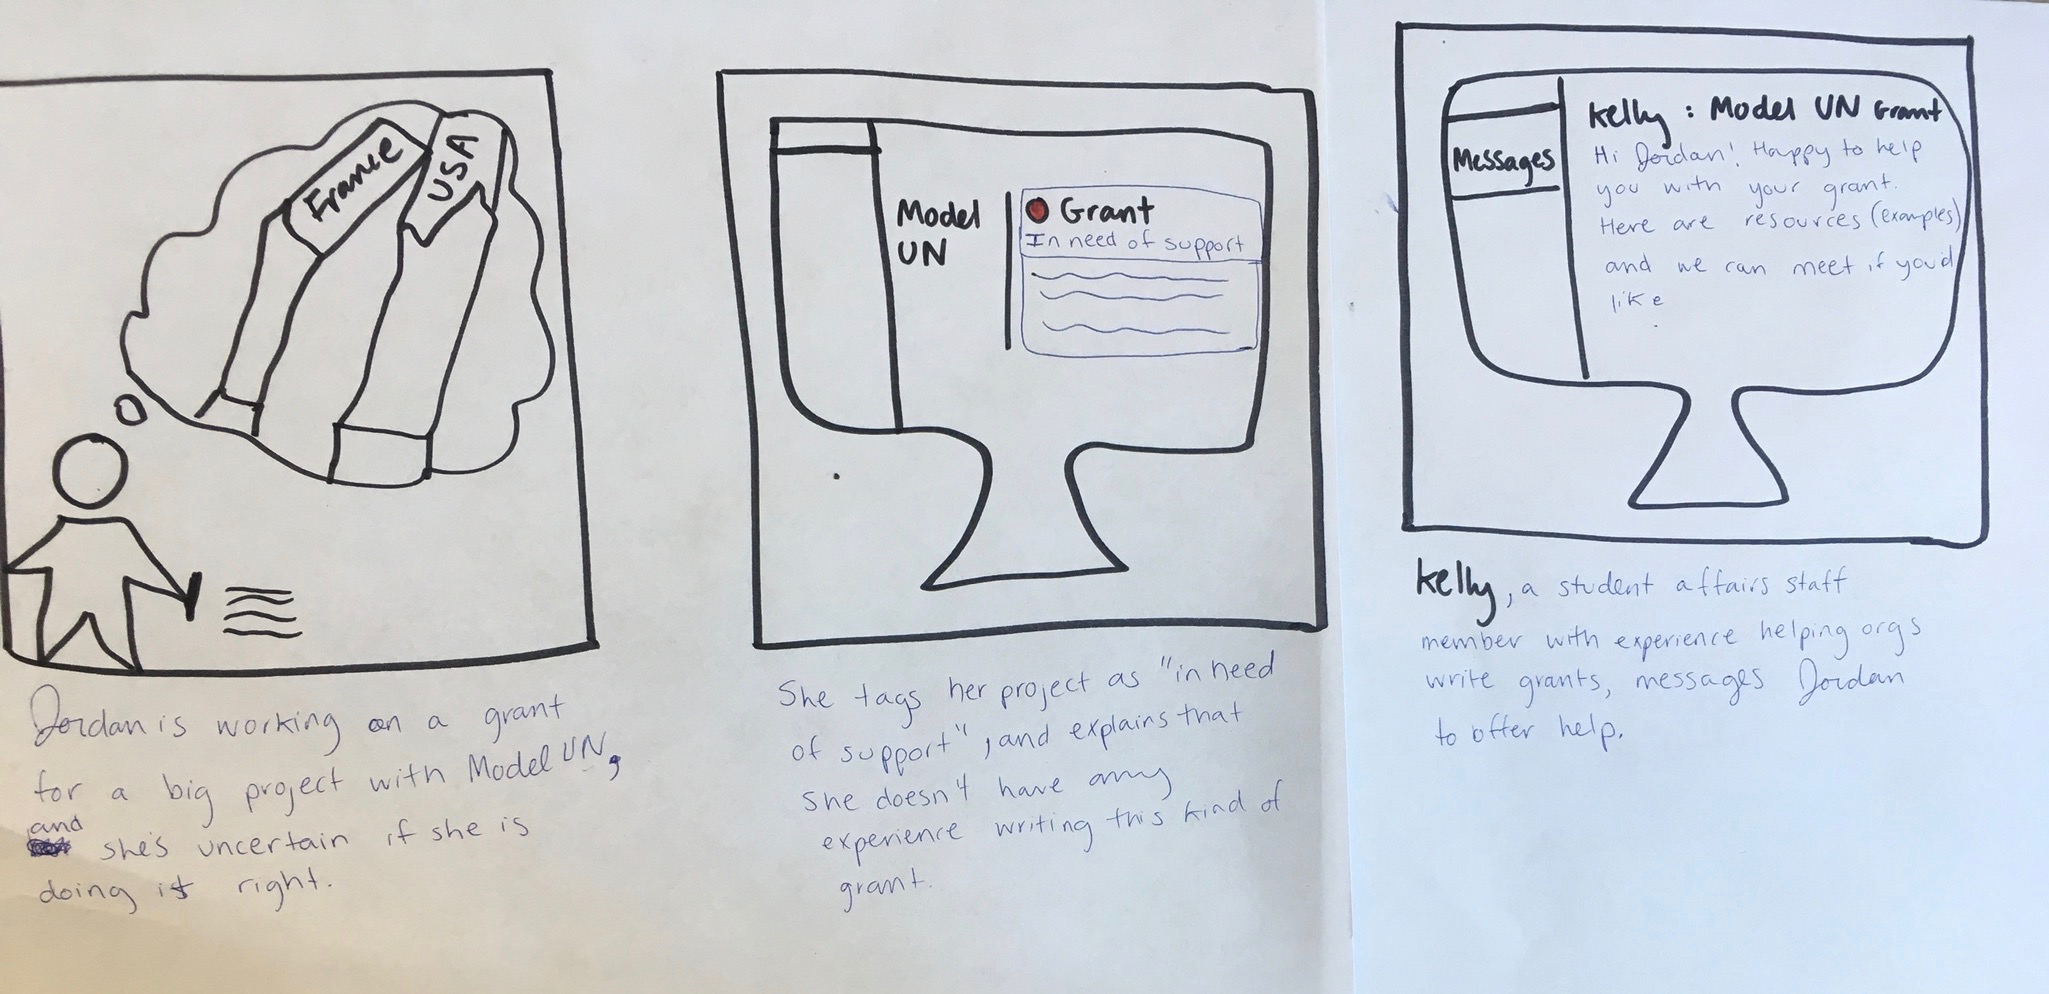 France
USA
Jordan is working on a grant
for a big project with Model UN,
and
she's uncertain if she is
doing it right.
Model
UN
Grant
In need of support
She tags her project as "in need
of support", and explains that
she doesn't have any
experience writing this kind of
grant.
Messages
Kelly : Model UN Grant
Hi Jordan! Happy to help
you with your grant.
Here are resources (examples)
and we can meet if you'd
like
Kelly, a student affairs staff
member with experience helping orgs
write grants, messages Jordan
to offer help.